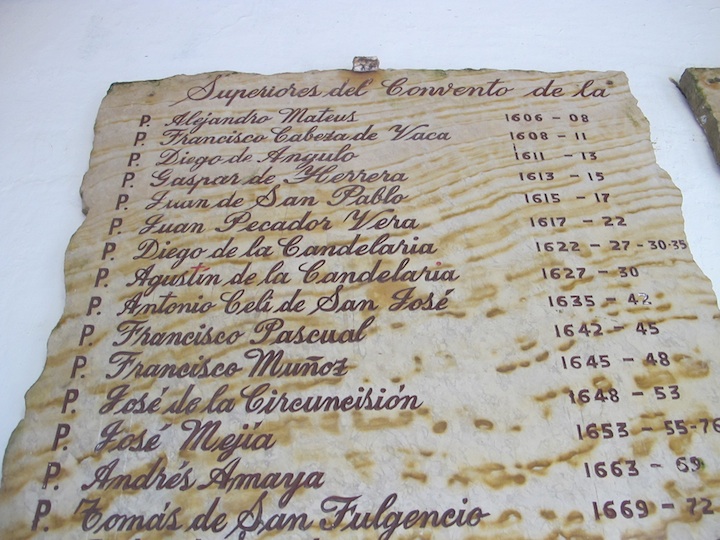 Superiores del Convento de la
P. Alejandro Mateus 1606 - 08
P. Francisco Cabeza de Vaca 1608 - 11
P. Diego de Angulo 1611 - 13
P. Gaspar de Herrera 1613 - 15
P. Juan de San Pablo 1615 - 17
P. Juan Pecador Vera 1617 - 22
P. Diego de la Candelaria 1622 - 27 - 30-35
P. Agustín de la Candelaria 1627 - 30
P. Antonio Celi de San José 1635 - 42
P. Francisco Pascual 1642 - 45
P. Francisco Muñoz 1645 - 48
P. José de la Circuncisión 1648 - 53
P. José Mejía 1653 - 55-76
P. Andrés Amaya 1663 - 69
P. Tomás de San Fulgencio 1669 - 72